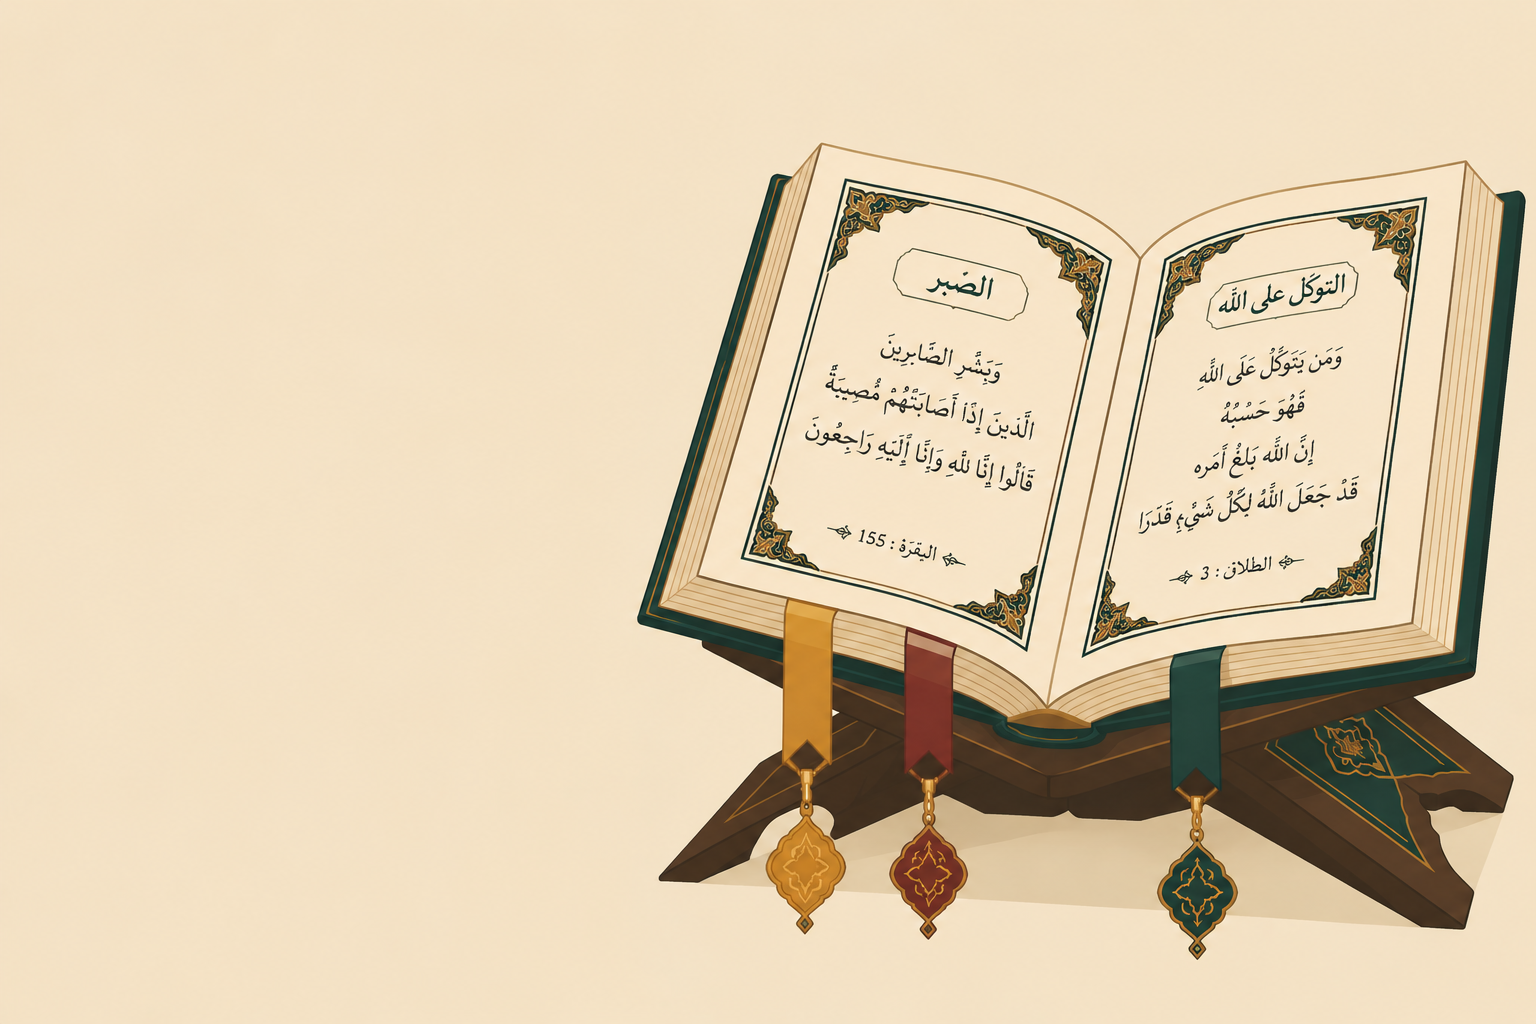 التوكَل على اللَّه
وَمَن يَتَوَكَّلُ عَلَى اللَّهِ
فَهُوَ حَسْبُهُ
إِنَّ اللَّه بَلغُ أَمَره
قَدْ جَعَلَ اللَّهُ لِكُلِّ شَيْءٍ قَدَرَا
الطلاق : 3
الصّبر
وَبَشِّرِ الصَّابِرِينَ
الَّذينَ إِذَا أَصَابَتْهُمْ مُّصِيبَةٌ
قَالُوا إِنَّا للَّهِ وَإِنَّا إِلَيْهِ رَاجِعُونَ
اليقرَة : 155